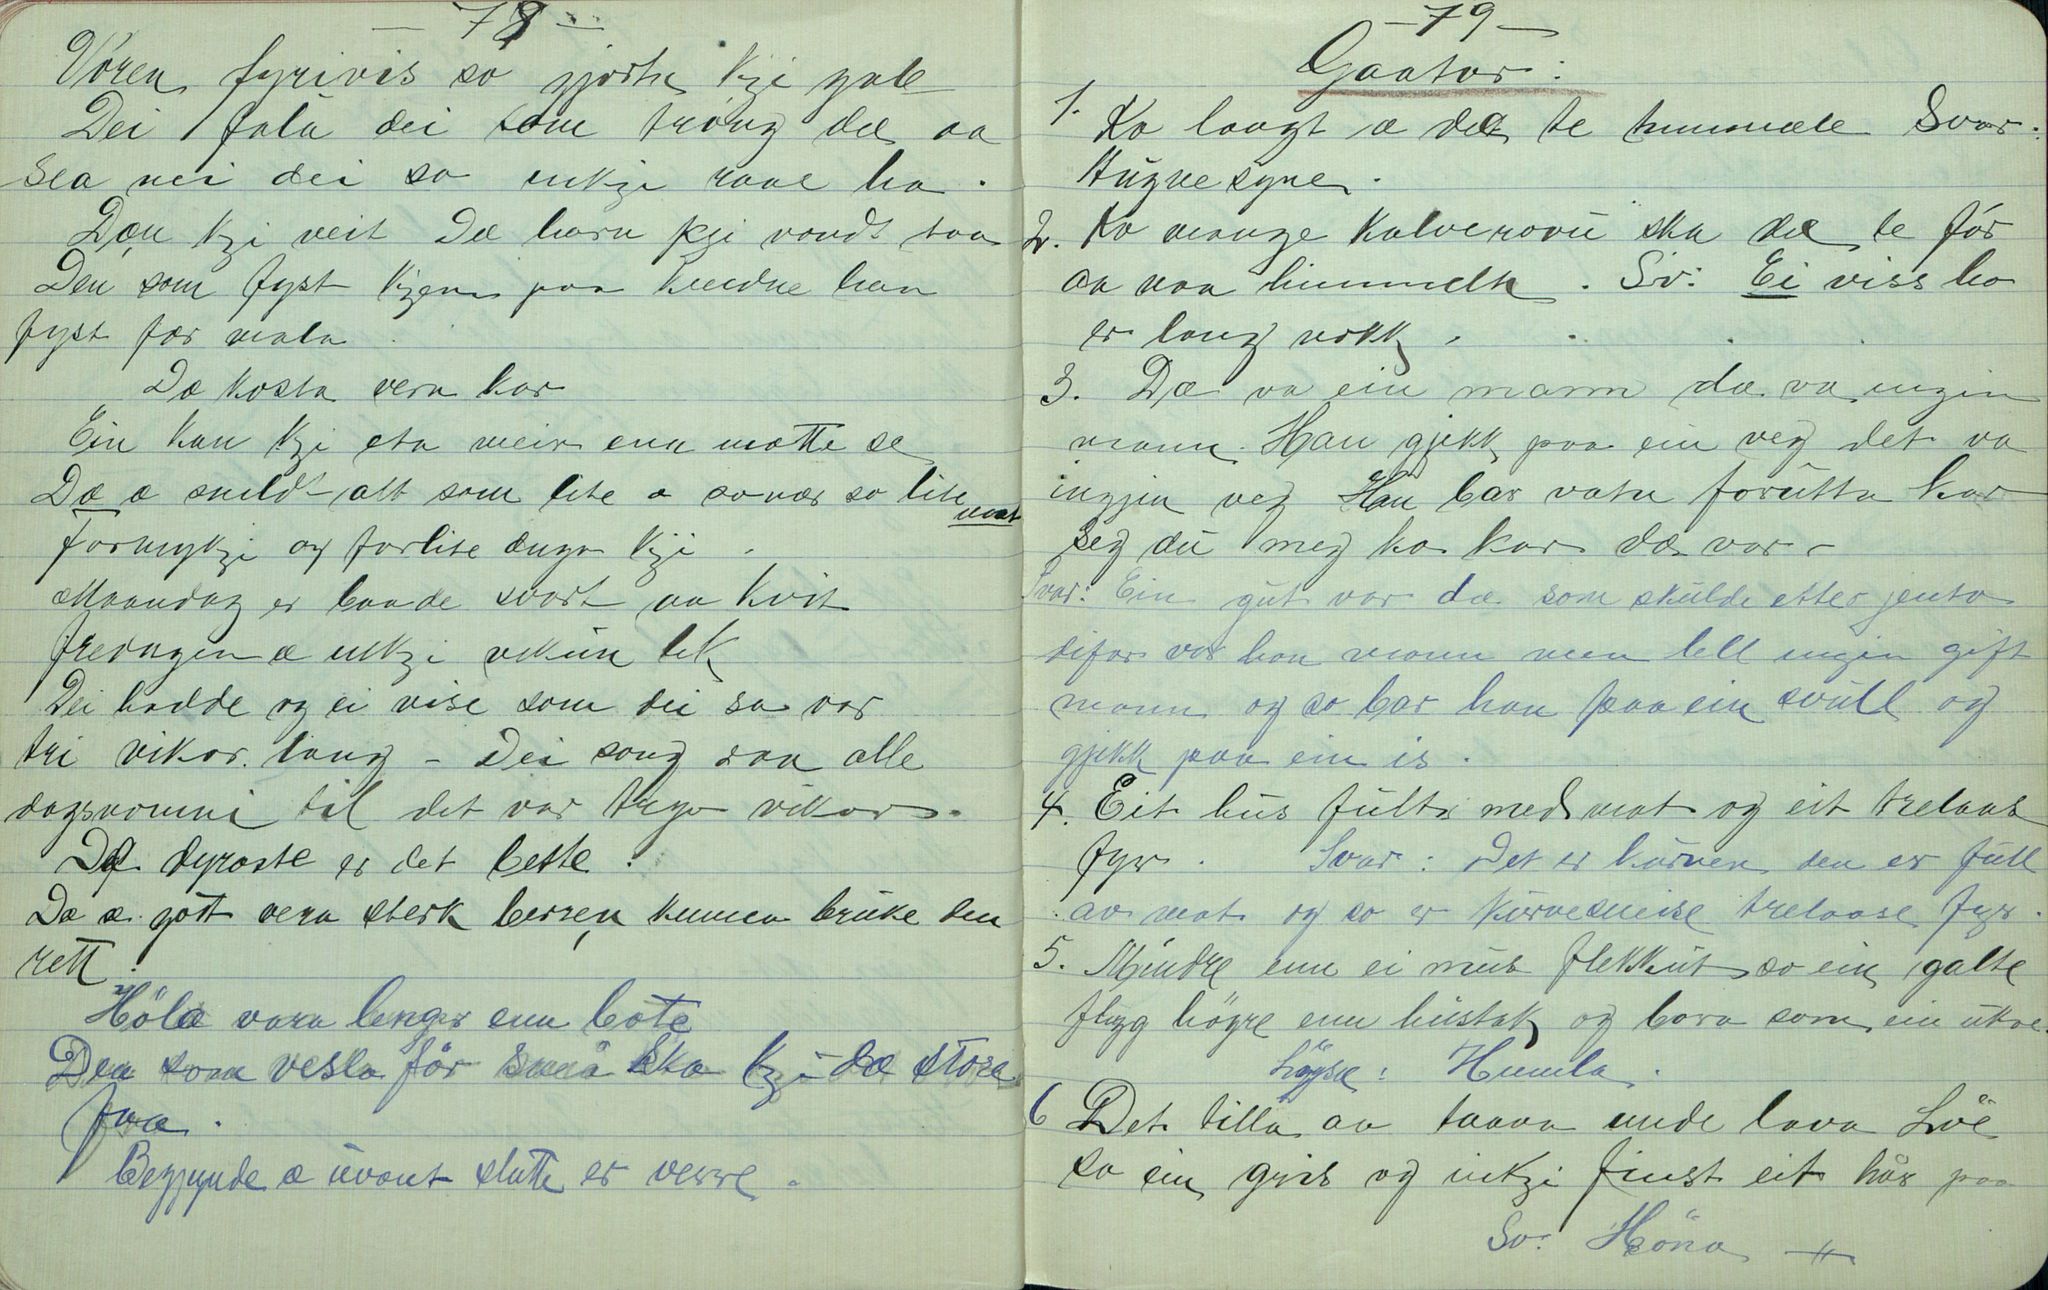 - 78 -
Voren fyrivis so gjorte kje gale
Dei fala dei som trong dæ aa
sea nei dei so inkji raae ha.
Dæn kji veit Dæ harn kji vondt taa
Den som fyst kjem paa kvedne han
fyst fær mala.
Dæ kosta vera kar
Ein kan kji eta meir enn mætte se
Dæ æ snildt alt som lite æ so nær so lite mat
formykji og forlite duga kji.
Maandag er baade svart aa kvit
fredagen æ inkji vikun lik
Dei hadde og ei vise som dei sa var
tri vikor lang - Dei song daa alle
dagsnomni til det var trya vikor.
Dæ dyraste er det beste.
Dæ æ gott vera sterk berren kunna bruke den
rett.
Höle vara lenger enn bote
Den som vesla før små ska kji dæ store
faa.
Begjynde æ uvant slutte er verre.
- 79 -
Gaator:
1. Ko langt æ dæ te himmele Svar:
Augnesyne.
2. Ko mange kalverovu ska dæ te før
aa naa himmelen. Sv: Ei viss ho
er lang nokk.
3. Dæ va ein mann dæ va ingin
mann. Han gjekk paa ein veg det va
ingjin veg Han bar vatn forutta kar
Seg du meg ka kar dæ var -
Svar: Ein gut var dæ som skulde etter jenta
difor var han mann men lell ingin gift
mann og so bar han paa ein svull og
gjekk paa ein is.
4. Eit hus fullt med mat og eit trelaas
fyr. Svar: Det er kurven den er full
av mat og so er kurvesneise trelaase fyr.
5. Mindre enn ei mus flekkut so ein galte
flyg høgre enn hustak og bæra som ein ukse.
Løyse: Humla.
6 Det tilla aa taava unde lava Löe
so ein gris og inkji finst eit hår paa
Sv: Höna